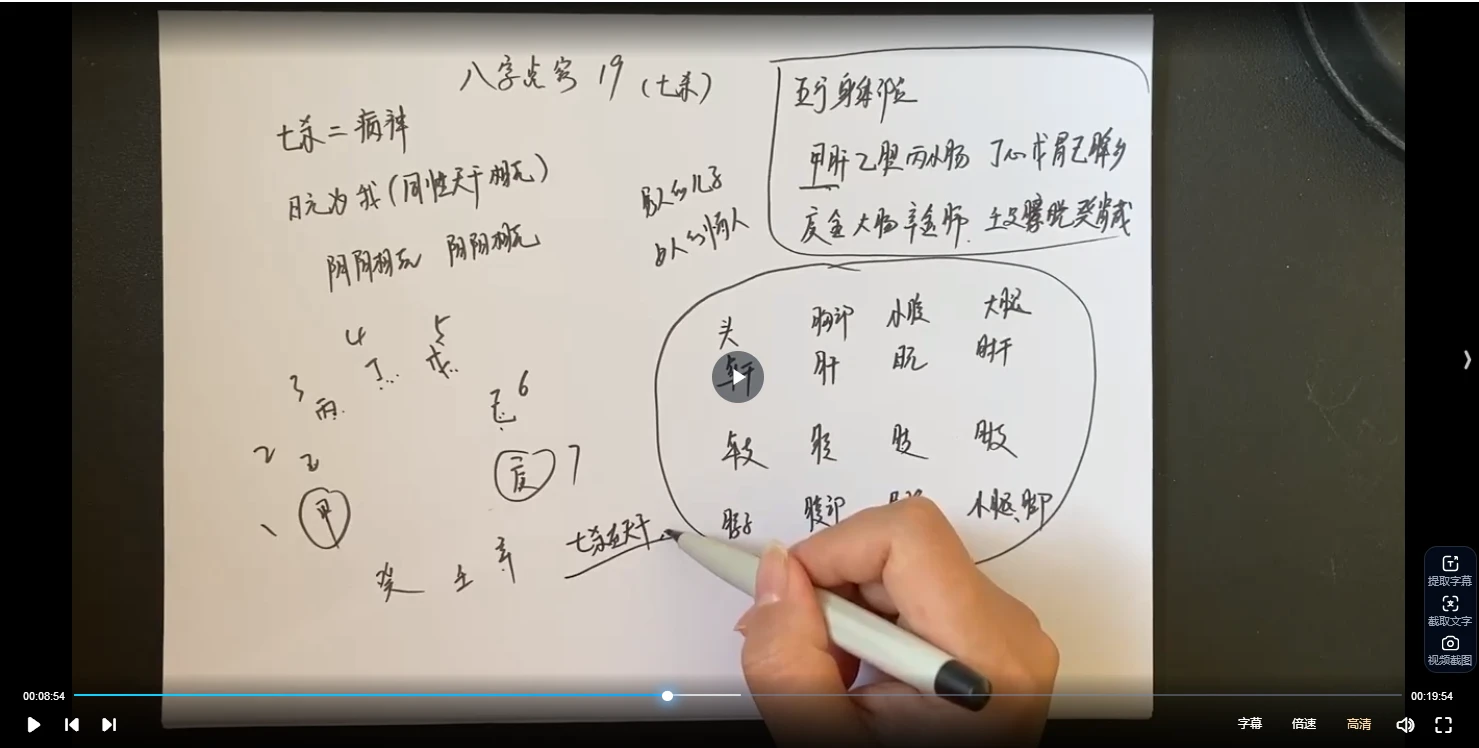 八字点窍 19 (七杀)
七杀=病神
日元为我(同性天干相克)
阳阳相克 阴阴相克
男人的儿子
女人的情人
五行身体部位
甲肝乙胆丙小肠 丁心戊胃己脾乡
庚金大肠辛金肺 壬
4 5
丁 戊
3 丙 己 6
2 乙 庚 7
1 甲
癸 壬 辛
七杀在天干
头 胸部 小腹 大腿
年干 月干 日元 时干
年支 月支 日支 时支
脖子 腹部 小腿、脚
提取字幕
截取文字
视频截图
00:08:54 00:19:54
字幕 倍速 高清